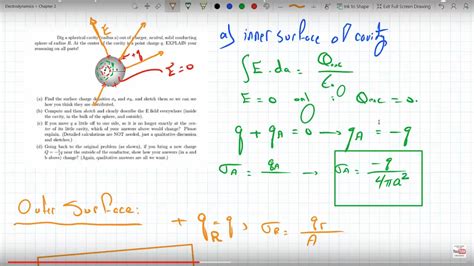 Electrodynamics > Chapter 2
Ink to Shape
Full Screen Drawing
Dig a spherical cavity (radius a) out of a larger, neutral, solid conducting
sphere of radius R. At the center of the cavity is a point charge q. EXPLAIN your
reasoning on all parts!
E
+q
E=0
(a) Find the surface charge densities σa and σR, and sketch them so we can see
how you think they are distributed.
(b) Compute and then sketch and clearly describe the E field everywhere (inside
the cavity, in the bulk of the sphere, and outside).
(c) If you move q a little off to one side, so it is no longer exactly at the center
of its little cavity, which of your answers above would change? Please
explain. (Detailed calculations are NOT needed, just a quantitative discussion,
and sketches.)
(d) Going back to the original problem (as shown), if you bring a new charge
near the outside of the conductor, show how your answers (in a and
b above) change? (Again, qualitative answers are all we want.)
a) inner surface of cavity
∫E.da = Qenc/ε0
E = 0 and ; Qenc = 0.
q + qA = 0 → qA = -q
σA = qA/A → σA = -q/4πa²
Outer Surface:
+ qR = q → σR = qR/A